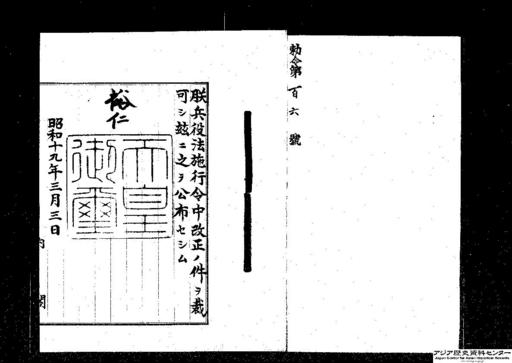 勅令第百六號
朕兵役法施行令中改正ノ件ヲ裁
可シ玆ニ之ヲ公布セシム
裕仁
天皇
御璽
昭和十九年三月三日
内閣
アジア歴史資料センター
Japan Center for Asian Historical Records